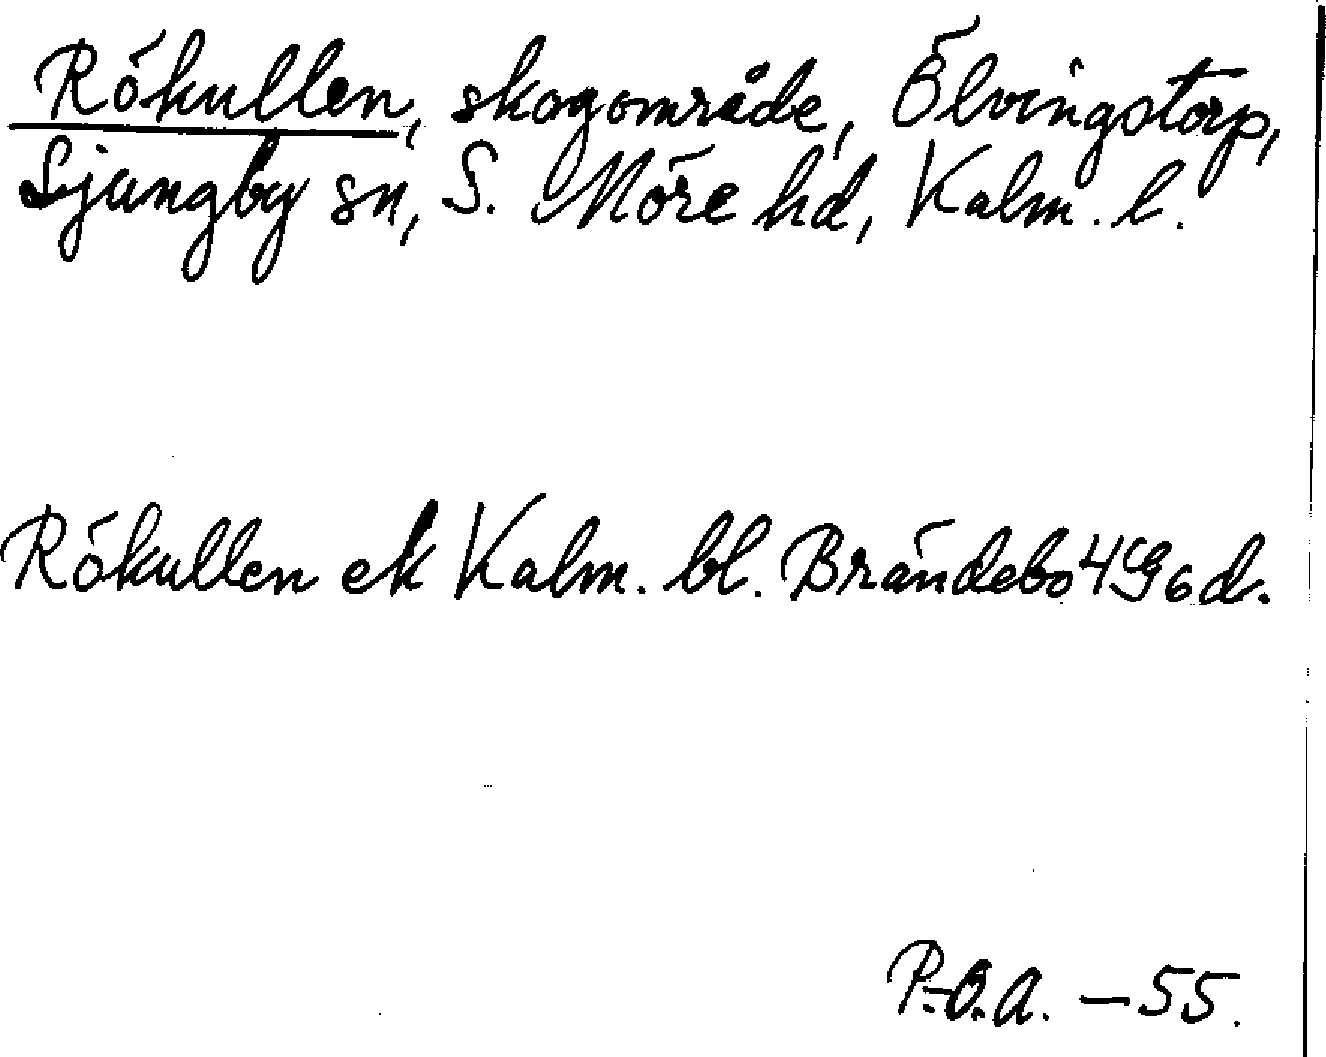 Rökullen, skogområde, Ölvingstorp,
Ljungby sn, S. Möre hd, Kalm. l.
Rökullen ek Kalm. bl. Brändebo 4G6d.
P.-O.A. – 55.